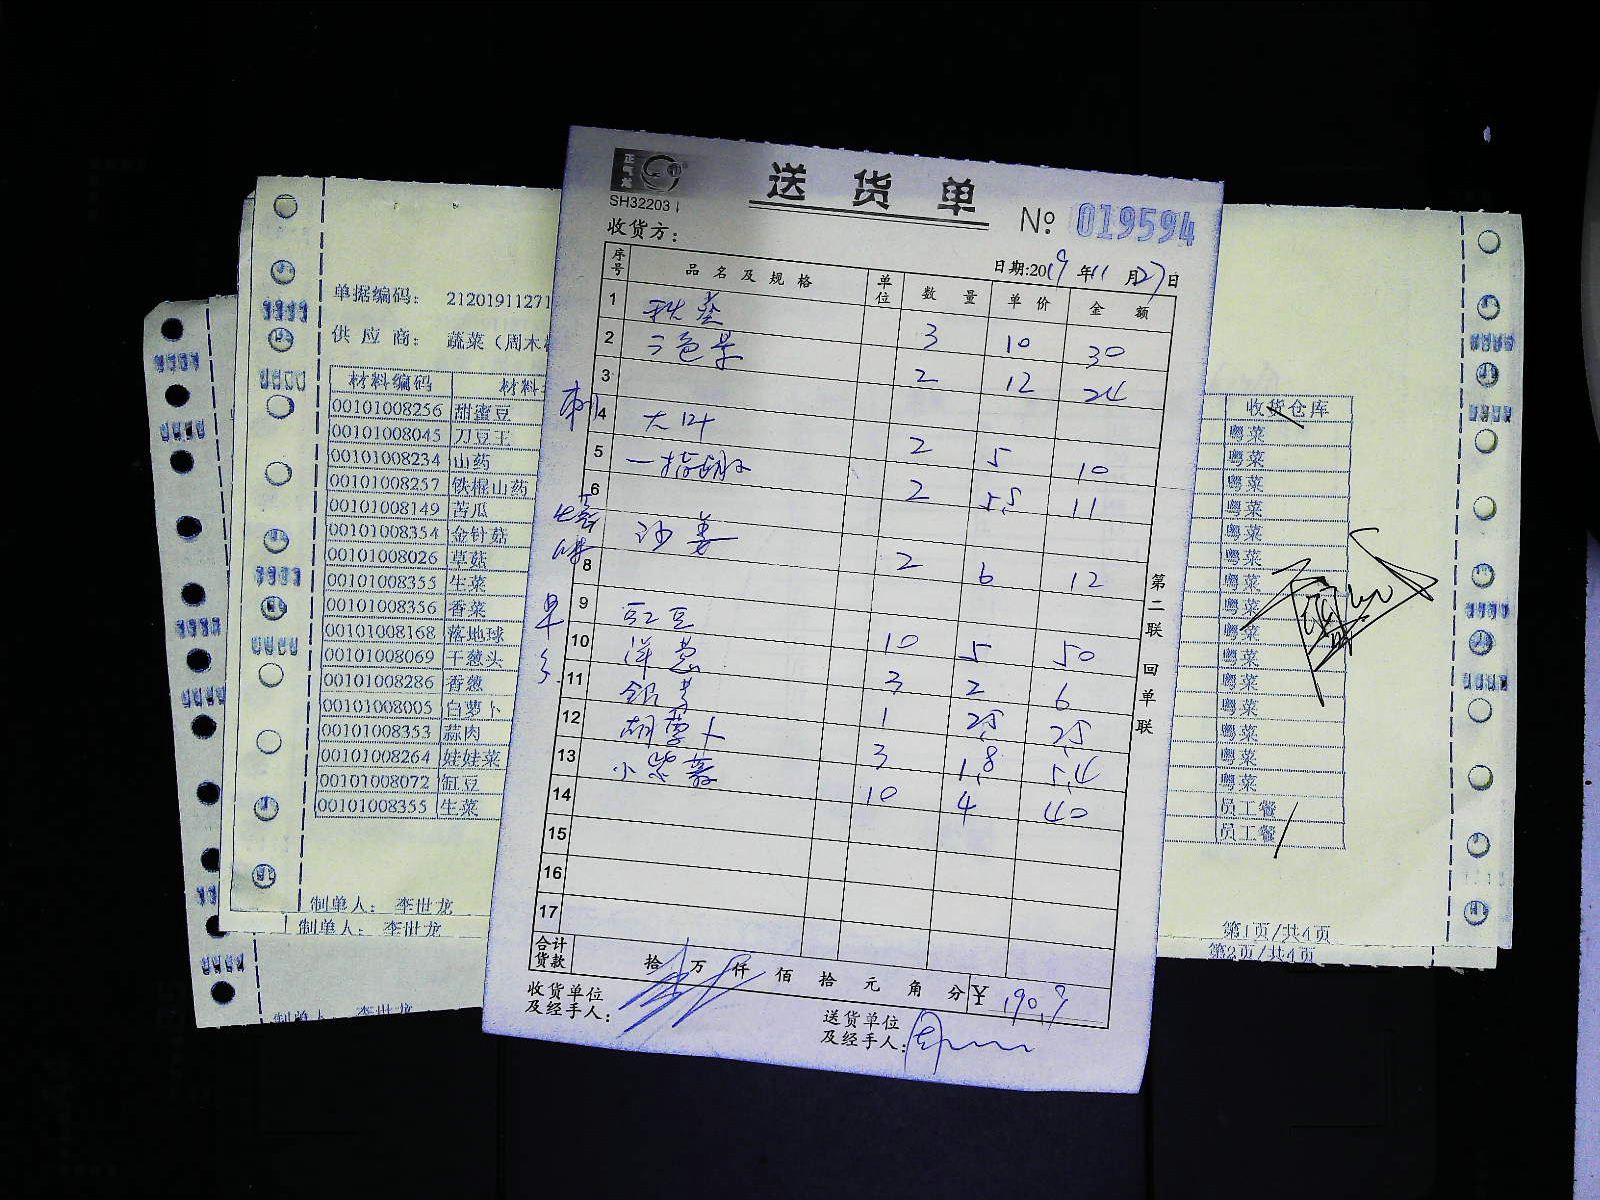 送货单
SH32203
№ 019594
收货方：
日期:2019年11月27日
序号 品名及规格 单位 数量 单价 金额
1 秋葵 3 10 30
2 三色堇 2 12 24
3
4 大叶 2 5 10
5 2 5.5 11
6
沙姜 2 6 12
8
9 豇豆 10 5 50
10 洋葱 3 2 6
11 银芽 1 2.5 2.5
12 胡萝卜 3 1.8 5.4
13 10 4 40
14
15
16
17
合计货款 拾 万 仟 佰 拾 元 角 分 ¥ 190.9
收货单位及经手人：
送货单位及经手人：
第二联 回单联
单据编码： 2120191127
供应商： 蔬菜（周木
材料编码 材料
00101008256 甜蜜豆
00101008045 刀豆王
00101008234 山药
00101008257 铁棍山药
00101008149 苦瓜
00101008354 金针菇
00101008026 草菇
00101008355 生菜
00101008356 香菜
00101008168 落地球
00101008069 干葱头
00101008286 香葱
00101008005 白萝卜
00101008353 蒜肉
00101008264 娃娃菜
00101008072 缸豆
00101008355 生菜
制单人： 李世龙
制单人： 李世龙
制单人 李世龙
收货仓库
粤菜
粤菜
粤菜
粤菜
粤菜
粤菜
粤菜
粤菜
粤菜
粤菜
粤菜
粤菜
粤菜
粤菜
粤菜
员工餐
员工餐
第1页/共4页
第2页/共4页